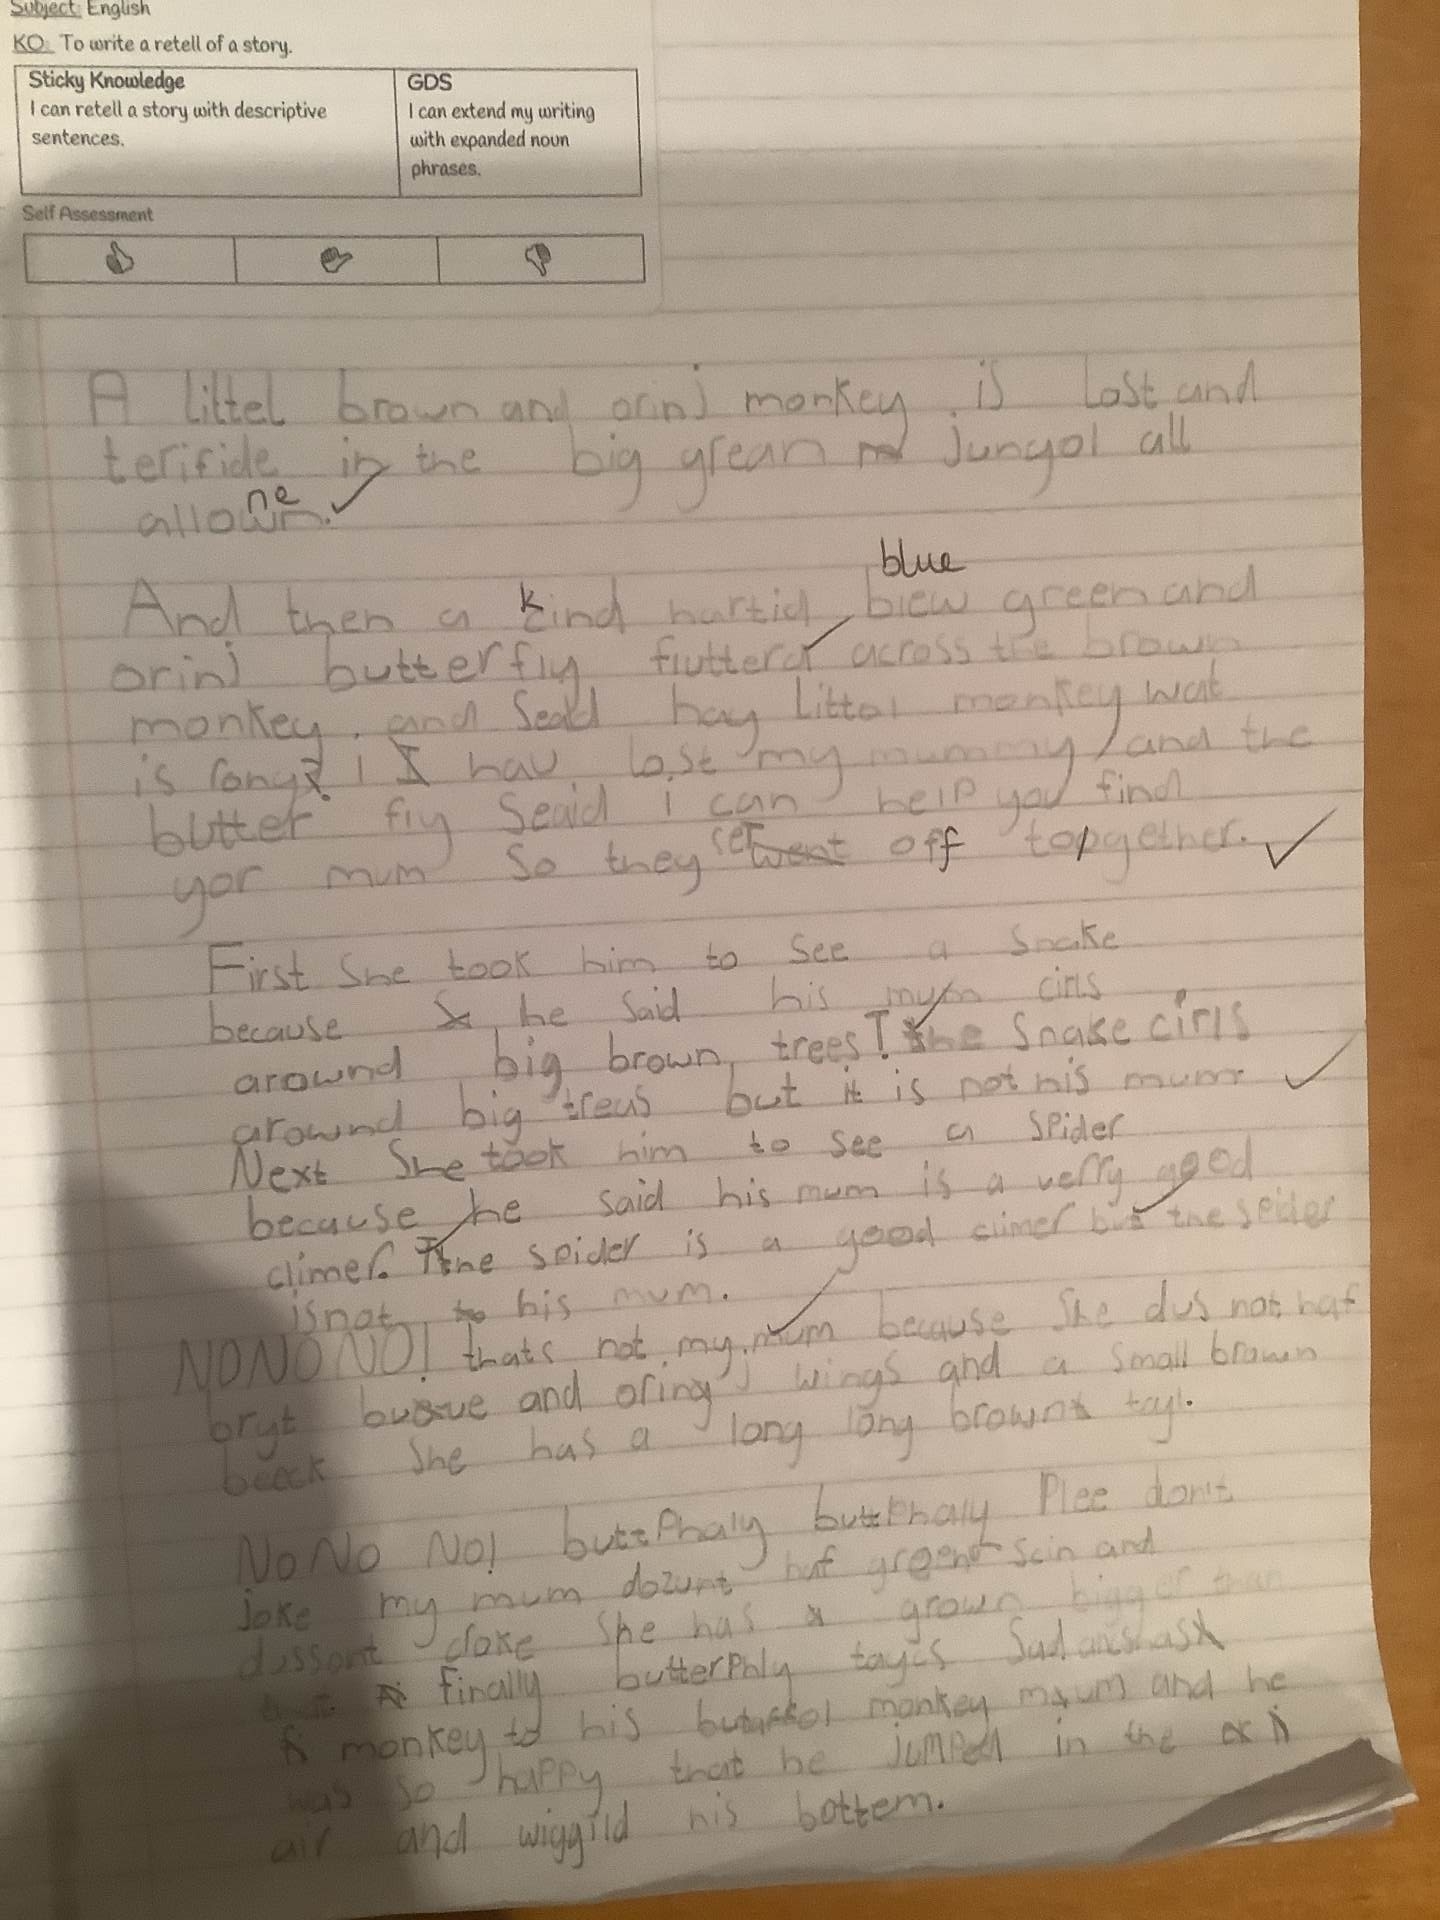 Subject: English
KO: To write a retell of a story.
Sticky Knowledge
I can retell a story with descriptive
sentences.
GDS
I can extend my writing
with expanded noun
phrases.
Self Assessment
A littel brown and orinj monkey is lost and
terifide in the big grean jungol all
ne
allown.
blue
And then a kind hartid blew green and
orinj butterfly flutterd across the brown
monkey. and Seaid hay littol monkey wat
is rong? I hav lost my mummy and the
butter fly Seaid i can help you find
yor mum so they set went off topgether.
First She took him to see a Snake
because he said his mum cirls
arownd big brown trees! The Snake cirls
arownd big treus but it is not his mum
Next She took him to see a spider
because he said his mum is a verry good
climer. The spider is a good climer but the spider
is not his mum.
NO NO NO! thats not my mum because She dus not haf
bryt and wings and a small brown
beeck She has a long long brown tayl.
No No No! buttPhaly buttPhaly Plee don't
joke my mum dozunt haf green scin and
She has grown bigger than
finally butterPhly
monkey to his monkey mum and he
was so happy that he jumped in the
air and wiggild his bottem.